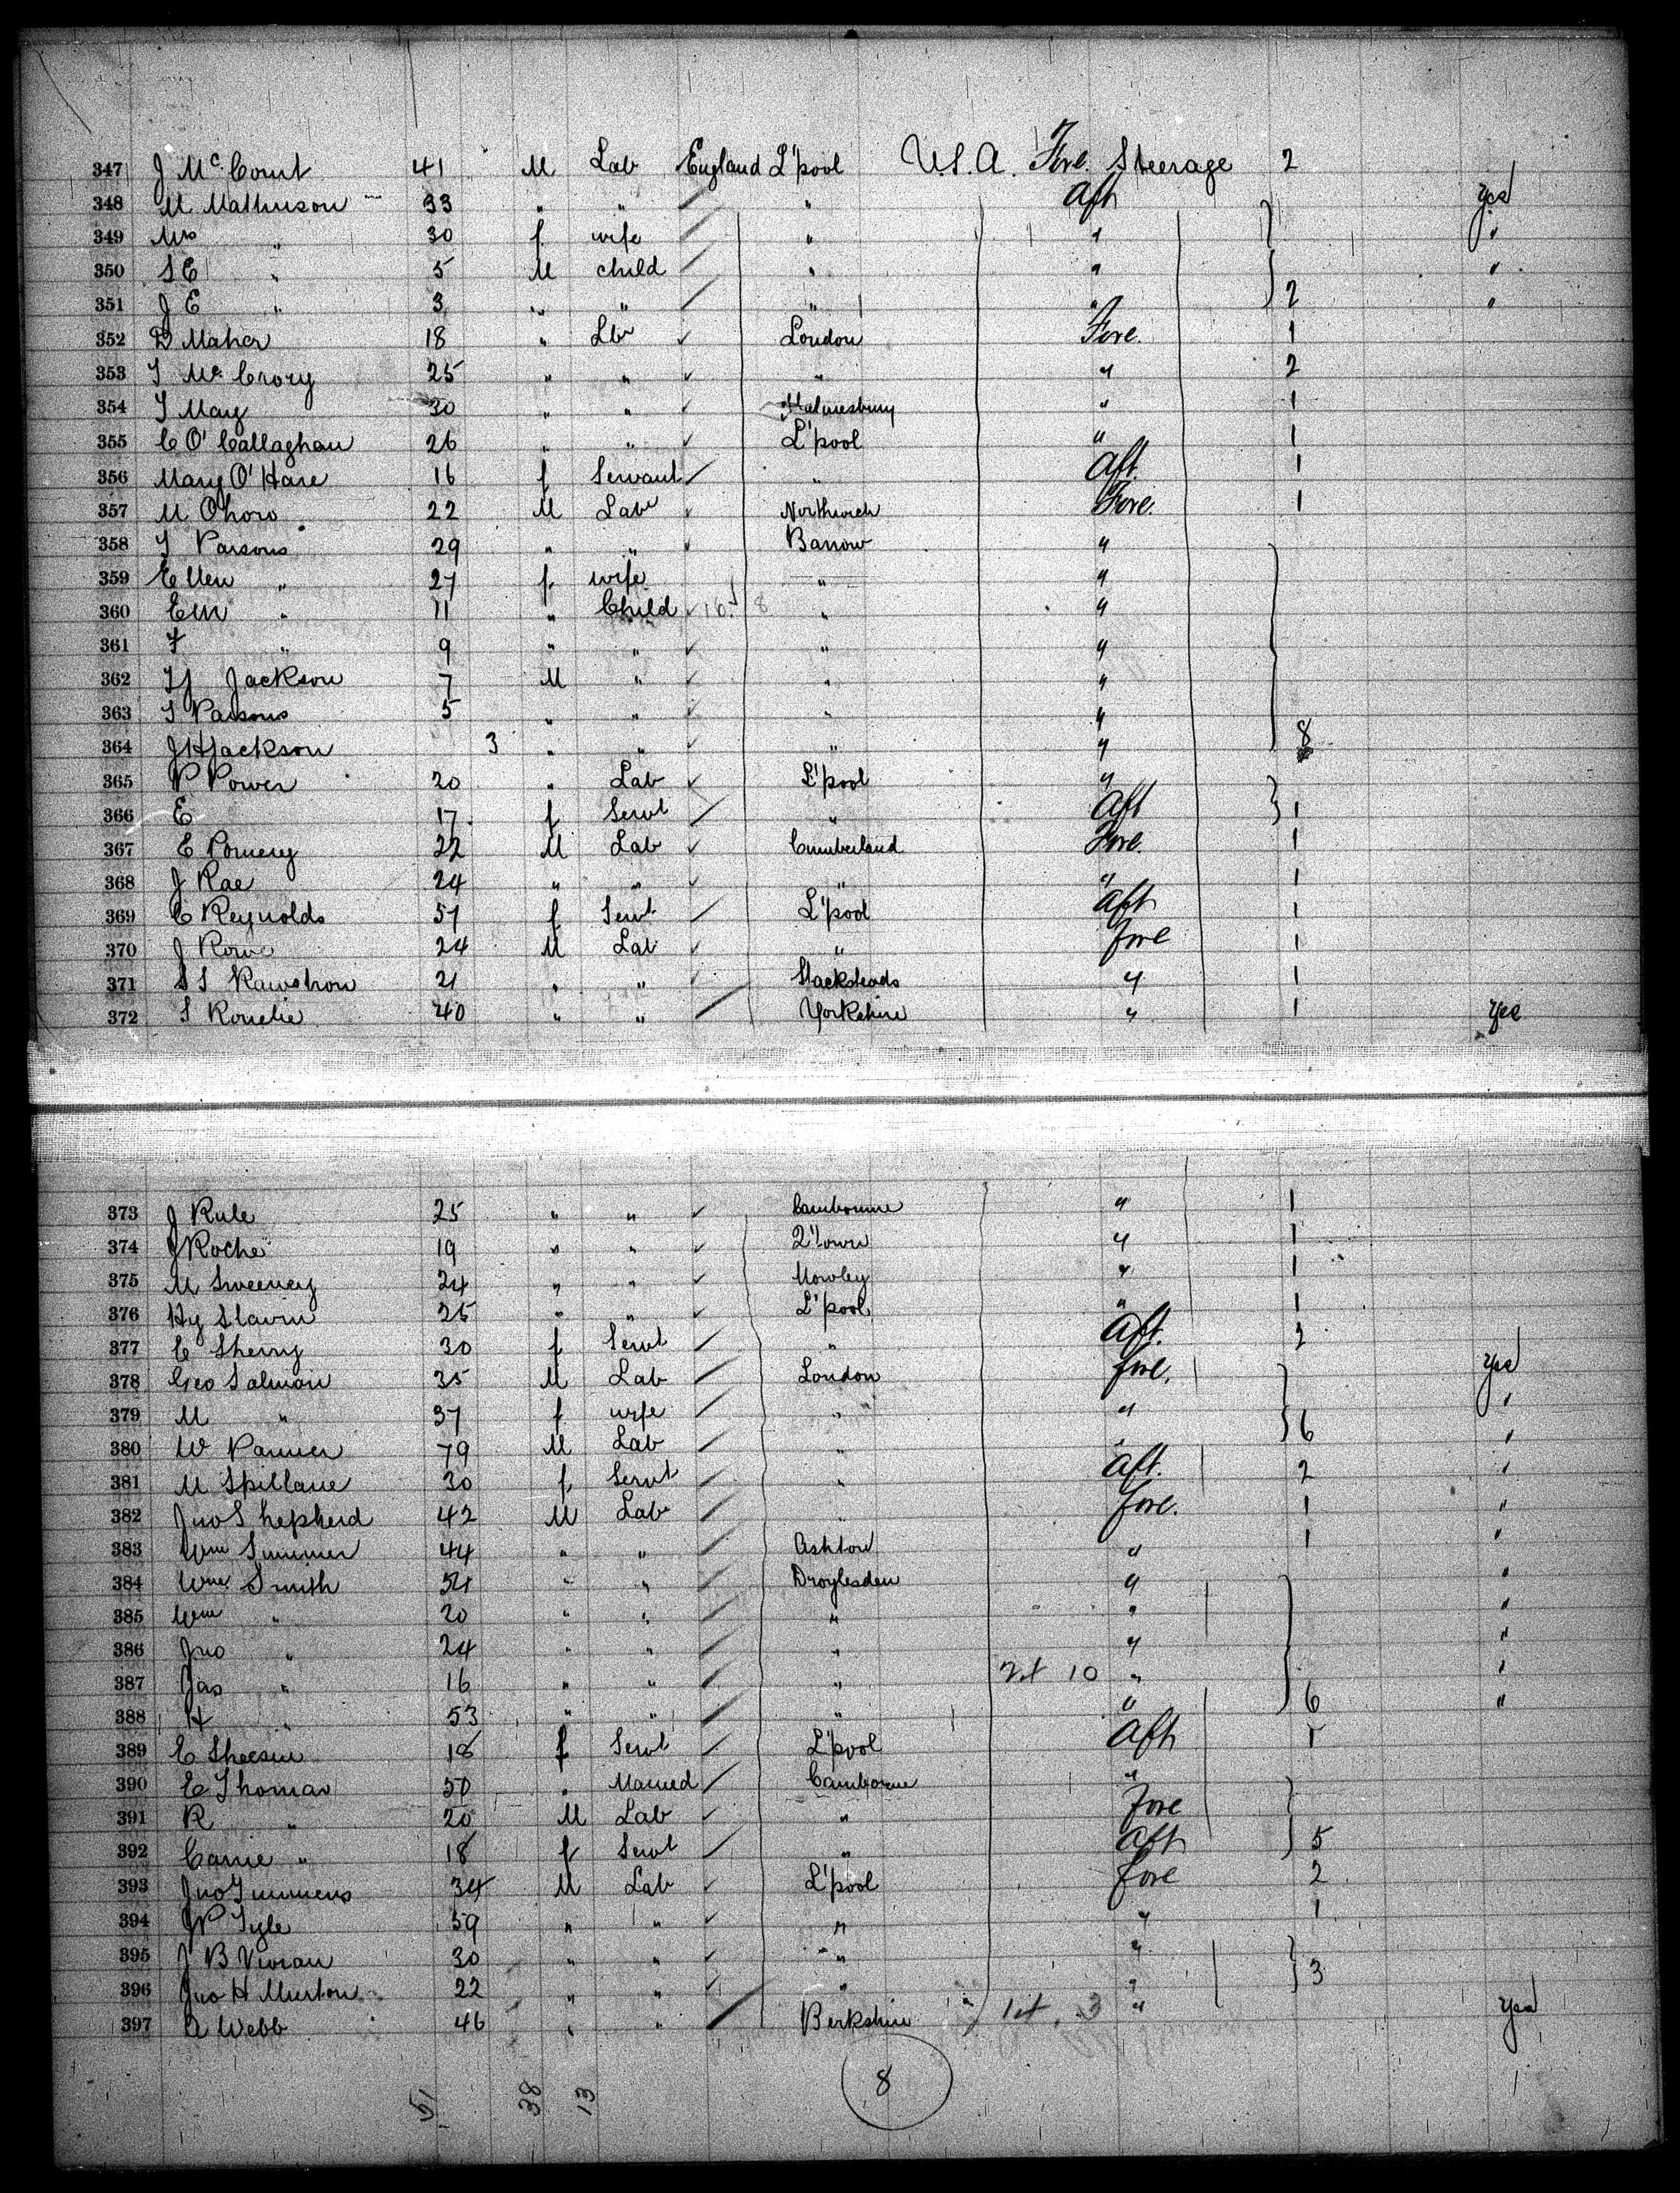 347 J McCourt 41 M Lab England L'pool U.S.A. Fore Steerage 2
348 M Mathieson 33 " " " Aft Yes
349 Mrs " 30 f wife " " "
350 S E " 5 M child " " "
351 J E " 3 " " " " 2 "
352 D Maher 18 " Lbr London Fore. 1
353 T McCrory 25 " " " " 2
354 T May 30 " " Malmesbury " 1
355 C O'Callaghan 26 " " L'pool " 1
356 Mary O'Hare 16 f Servant " Aft. 1
357 M Ohoro 22 M Labr Northwich Fore. 1
358 T Parsons 29 " " Barrow "
359 Ellen " 27 f. wife " "
360 Em " 11 " Child 16 8 " "
361 F " 9 " " " "
362 Jackson 7 M " " "
363 S Parsons 5 " " " "
364 J H Jackson 3 " " " " 8
365 P Power 20 " Lab L'pool "
366 E 17 f Servt " Aft 1
367 E Pomery 22 M Lab Cumberland Fore. 1
368 J Rae 24 " " " " 1
369 C Reynolds 57 f Servt L'pool Aft 1
370 J Rowe 24 M Lab " fore 1
371 S S Rawstron 21 " " Stacksteads " 1
372 40 " " Yorkshire " 1 Yes
373 J Rule 25 " " Cambourne " 1
374 J Roche 19 " " Q'town " 1
375 M Sweeney 24 " " Mowley " 1
376 Hy Slavin 25 " " L'pool " 1
377 C Sherry 30 f Servt " Aft. 2
378 Geo Salmon 35 M Lab London fore. Yes
379 M " 37 f wife " " 6 "
380 W Panner 79 M Lab " " "
381 M Spillane 30 f Servt " Aft. 2 "
382 Jno Shepherd 42 M Lab " fore. 1 "
383 Wm Summer 44 " " Ashton " 1 "
384 Wm Smith 54 " " Droylesden " "
385 Wm " 20 " " " " "
386 Jno " 24 " " " " "
387 Jas " 16 " " " 2et 10 " "
388 H " 53 " " " " 6 "
389 E 18 f Servt L'pool Aft 1
390 E Thomas 50 " Married Camborne "
391 R " 20 M Lab " Fore
392 Carrie " 18 f Servt " Aft 5
393 Jno Timmens 34 M Lab L'pool fore 2
394 J P Tyle 59 " " " " 1
395 J B Vivian 30 " " " "
396 Jno H Murton 22 " " " " 3
397 A Webb 46 " " Berkshire 1et. 3 " Yes
51 38 13 8